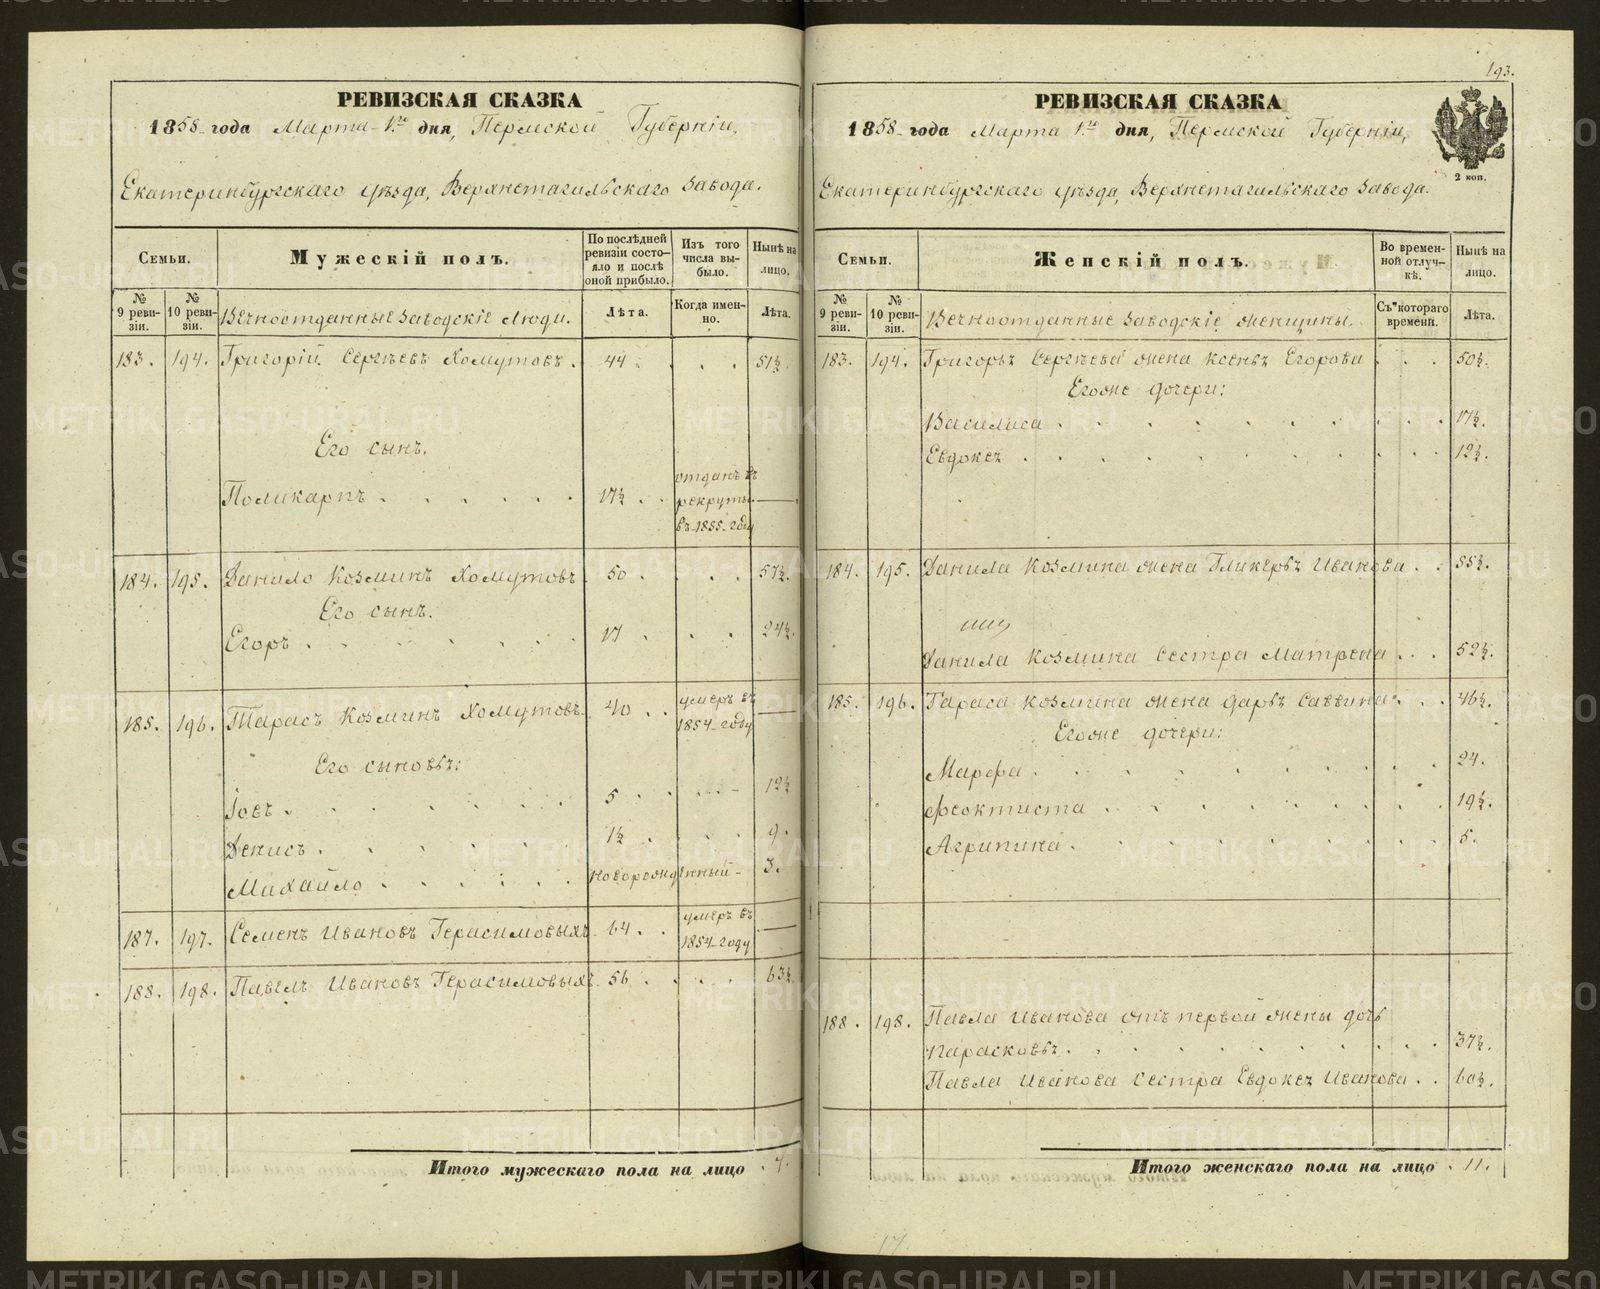 РЕВИЗСКАЯ СКАЗКА
1858 года Марта 1го дня, Пермской Губерніи,
Екатеринбургскаго уѣзда, Верхнетагильскаго завода.
Семьи.
Мужескій полъ.
По послѣдней ревизіи состояло и послѣ оной прибыло.
Изъ того числа выбыло.
Нынѣ на лицо.
№ 9 ревизіи.
№ 10 ревизіи.
Вечноотданные заводскіе люди.
Лѣта.
Когда именно.
Лѣта.
183. 194. Григорій Сергѣевъ Хомутовъ. 44 51½.
Его сынъ.
Поликарпъ 17½ отданъ въ рекруты въ 1855 году —
184. 195. Данило Козминъ Хомутовъ 50 57½.
Его сынъ.
Егоръ 17 24½.
185. 196. Тарасъ Козминъ Хомутовъ. 40 умеръ въ 1854 году —
Его сыновья:
Іовъ 5 12½
Денисъ 1½ 9.
Михайло новорожденный 3.
187. 197. Семенъ Ивановъ Герасимовыхъ 64 умеръ въ 1854 году —
188. 198. Павелъ Ивановъ Герасимовыхъ 56 63½
Итого мужескаго пола на лицо 7.
193.
РЕВИЗСКАЯ СКАЗКА
1858 года Марта 1го дня, Пермской Губерніи,
2 коп.
Екатеринбургскаго уѣзда, Верхнетагильскаго завода.
Семьи.
Женскій полъ.
Во временной отлучкѣ.
Нынѣ на лицо.
№ 9 ревизіи.
№ 10 ревизіи.
Вечноотданные заводскіе женщины.
Съ котораго времени.
Лѣта.
183. 194. Григорья Сергѣева жена Ксенья Егорова 50½.
Егоже дочери:
Василиса 17½.
Евдокея 12½.
184. 195. Данила Козмина жена Гликерья Иванова 55½.
Данила Козмина сестра Матрена 52½.
185. 196. Тараса Козмина жена Дарья Саввина 46½.
Егоже дочери:
Марфа 24.
Феоктиста 19½.
Агрипина 5.
188. 198. Павла Иванова отъ первой жены дочь
Парасковья 37½.
Павла Иванова сестра Евдокея Иванова 60½.
Итого женскаго пола на лицо 11.
17
METRIKI.GASO-URAL.RU